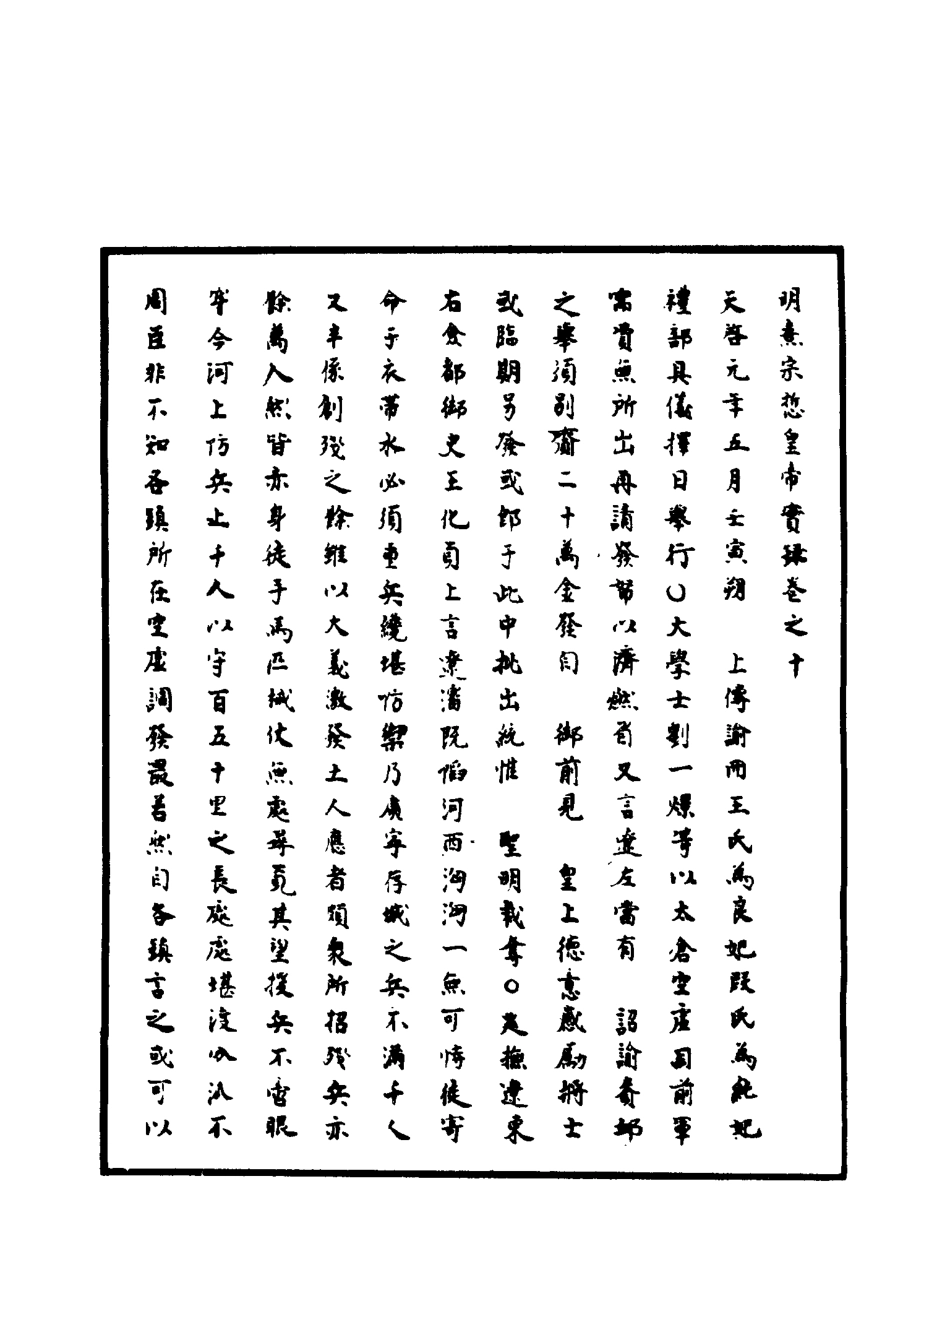 明熹宗悊皇帝實錄卷之十
天啓元年五月壬寅朔　上傳諭冊王氏為良妃段氏為純妃
禮部具儀擇日舉行〇大學士劉一燝等以太倉空虛目前軍
需賞無所出再請發帑以濟燃眉又言遼左當有　詔諭賚部
之舉須別齎二十萬金發自　御前見　皇上德意感勵將士
或臨期另發或即于此中批出統惟　聖明裁奪〇巡撫遼東
右僉都御史王化貞上言遼瀋既陷河西洶洶一無可恃徒寄
命于衣帶水必須重兵纔堪防禦乃廣寧存城之兵不滿千人
又半係創殘之餘維以大義激發土人應者頗衆所招殘兵亦
餘萬人然皆赤身徒手馬匹械仗無處尋覓其望援兵不啻眼
穿今河上防兵止千人以守百五十里之長處處堪渡分汛不
周臣非不知各鎮所在空虛調發最苦然自各鎮言之或可以